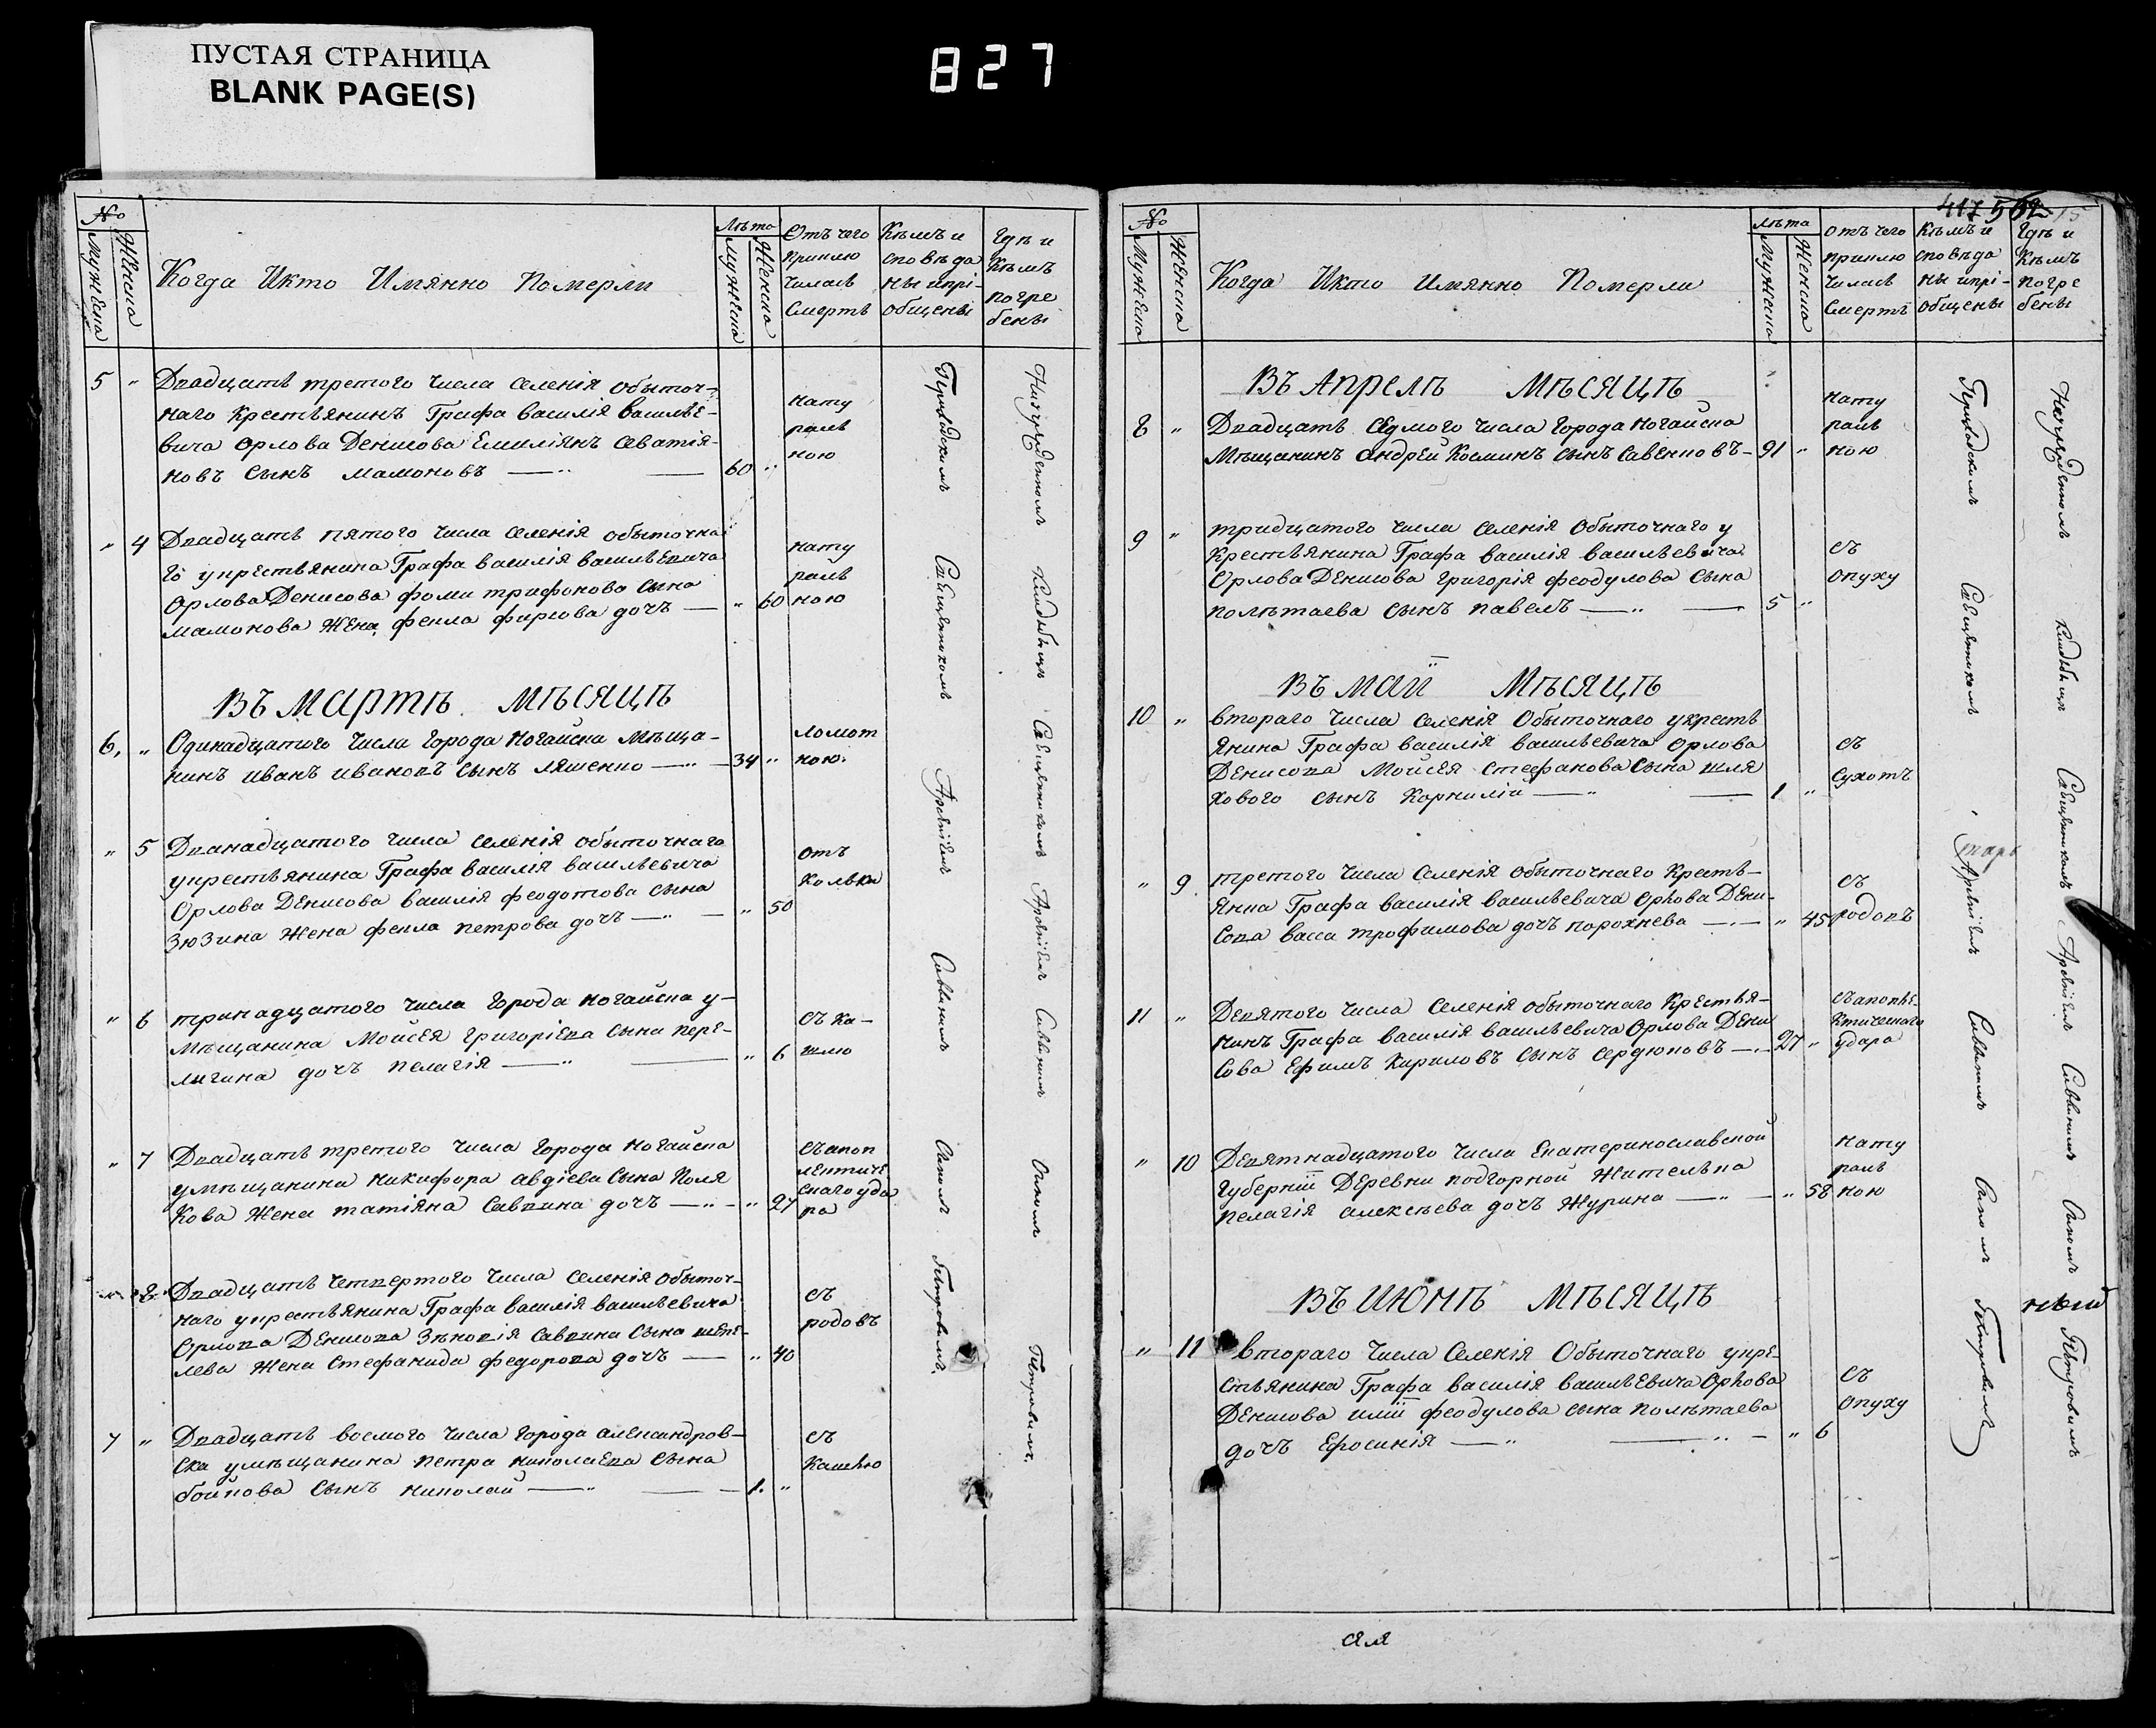 ПУСТАЯ СТРАНИЦА
BLANK PAGE(S)
827
№
Мужеска
Женска
Когда Икто Имянно Померли
Лѣта
Мужеска
Женска
Отъ чего
приклю
чилась
Смерть
Кѣмъ и
сповѣда
ны ипрі-
общены
Гдѣ и
Кѣмъ
погре
бены
5 „ Двадцать третого числа селенія обыточ-
наго Крестьянинъ Графа василія василье-
вича Орлова Денисова Емиліянъ Севатія-
новъ сынъ мамоновъ — „ — 60 „
нату
раль
ною
„ 4 Двадцать пятого числа селенія обыточна
го укрестьянина Графа василія васильевича
Орлова Денисова фоми трифонова сына
мамонова Жена фекла фирсова дочъ — „ 60
нату
раль
ною
ВЪ МАРТѢ МѢСЯЦѢ
6. „ Одинадцатого числа города Ногайска мѣща-
нинъ иванъ ивановъ сынъ ляшенко — „ — 34 „
ломот
ною.
„ 5 Дванадцатого числа селенія обыточнаго
укрестьянина Графа василія васильевича
Орлова Денисова василія феодотова сына
Зюзина Жена фекла петрова дочъ — „ — „ 50
отъ
Колька
„ 6 тринадцатого числа города ногайска у-
мѣщанина Мойсея григоріева сына пере-
лигина дочъ пелагія — „ — „ 6
съ ка-
шлю
„ 7 Двадцать третого числа города ногайска
умѣщанина никифора авдіева сына Поля
кова Жена татіяна савкина дочъ — „ — „ 27
съапоп
лектиче
скаго уда
ра
„ 8 Двадцать четвертого числа селенія обыточ-
наго укрестьянина Графа василія васильевича
Орлова Денисова Зѣновія савкина сына шепе-
лева Жена Стефанида федорова дочъ — „ 40
съ
родовъ
7 „ Двадцать восмого числа города александров-
ска умѣщанина петра николаева сына
бойкова сынъ николай — „ — 1. „
съ
кашлю
Священникомъ
Савинимъ
Петровимъ.
Священникомъ
Савинимъ
Петровимъ.
417 562
№
Мужеска
Женска
Когда Икто Имянно Померли
Лѣта
Мужеска
Женска
отъ чего
приклю
чилась
Смерть
Кѣмъ и
сповѣда
ны ипрі-
общены
Гдѣ и
Кѣмъ
погре
бены
ВЪ АПРЕЛѢ МѢСЯЦѢ
8 „ Двадцать седмого числа города ногайска
Мѣщанинъ андрей Косминъ сынъ савенковъ - 91 „
нату
раль
ною
9 „ тридцатого числа селенія Обыточнаго у
Крестьянина Графа василія васильевича
Орлова Денисова григорія феодулова сына
полѣтаева сынъ павелъ — „ — 5 „
съ
опуху
ВЪ МАЙ МѢСЯЦѢ
10 „ втораго числа селенія Обыточнаго укресть
янина Графа василія васильевича Орлова
Денисова Мойсея стефанова сына шля
хового сынъ Корнилій — „ — 1 „
съ
сухотъ
„ 9 третого числа селенія обыточнаго Кресть-
янка Графа василія васильевича Орлова Дени-
сова васса трофимова дочъ порохнева — „ 45
съ
родовъ
11 „ Девятого числа селенія обыточнаго Крестья-
нинъ Графа василія васильевича Орлова Дени
сова Ефимъ Кириловъ сынъ сердюковъ — 27 „
съапопле-
ктическаго
удара
„ 10 Девятнадцатого числа Екатеринославской
Губерніи Деревни подгорной Жителька
пелагія алексѣева дочъ Журина — „ — „ 58
нату
раль
ною
ВЪ ИЮНѢ МѢСЯЦѢ
„ 11 втораго числа селенія Обыточнаго укре-
стьянина Графа василія васильевича Орлова
Денисова иліи феодулова сына полѣтаева
дочъ Ефосинія — „ — „ — „ 6
съ
опуху
Священникомъ
Савинимъ
Петровимъ
Священникомъ
Савинимъ
Петровимъ